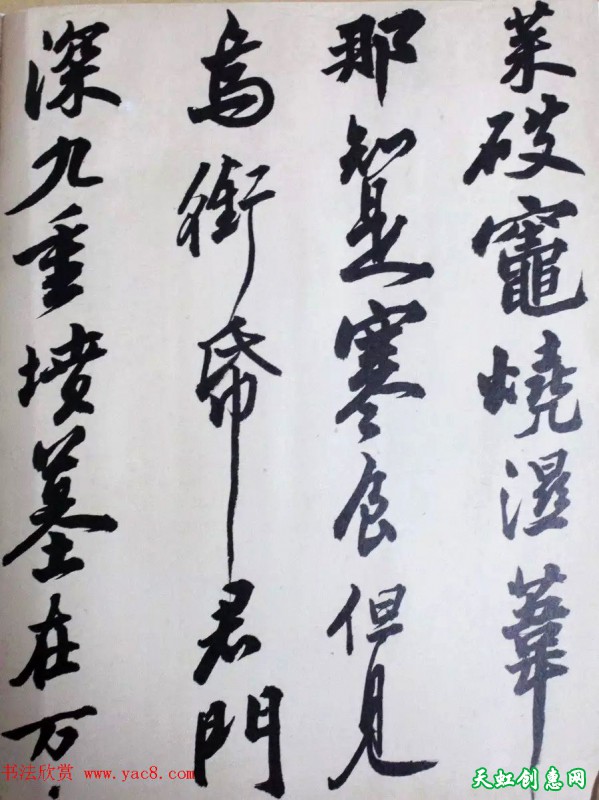 菜破竈燒濕葦
那知是寒食但見
烏銜帋君門
深九重墳墓在万
书法欣赏 www.yac8.com
天虹创惠网